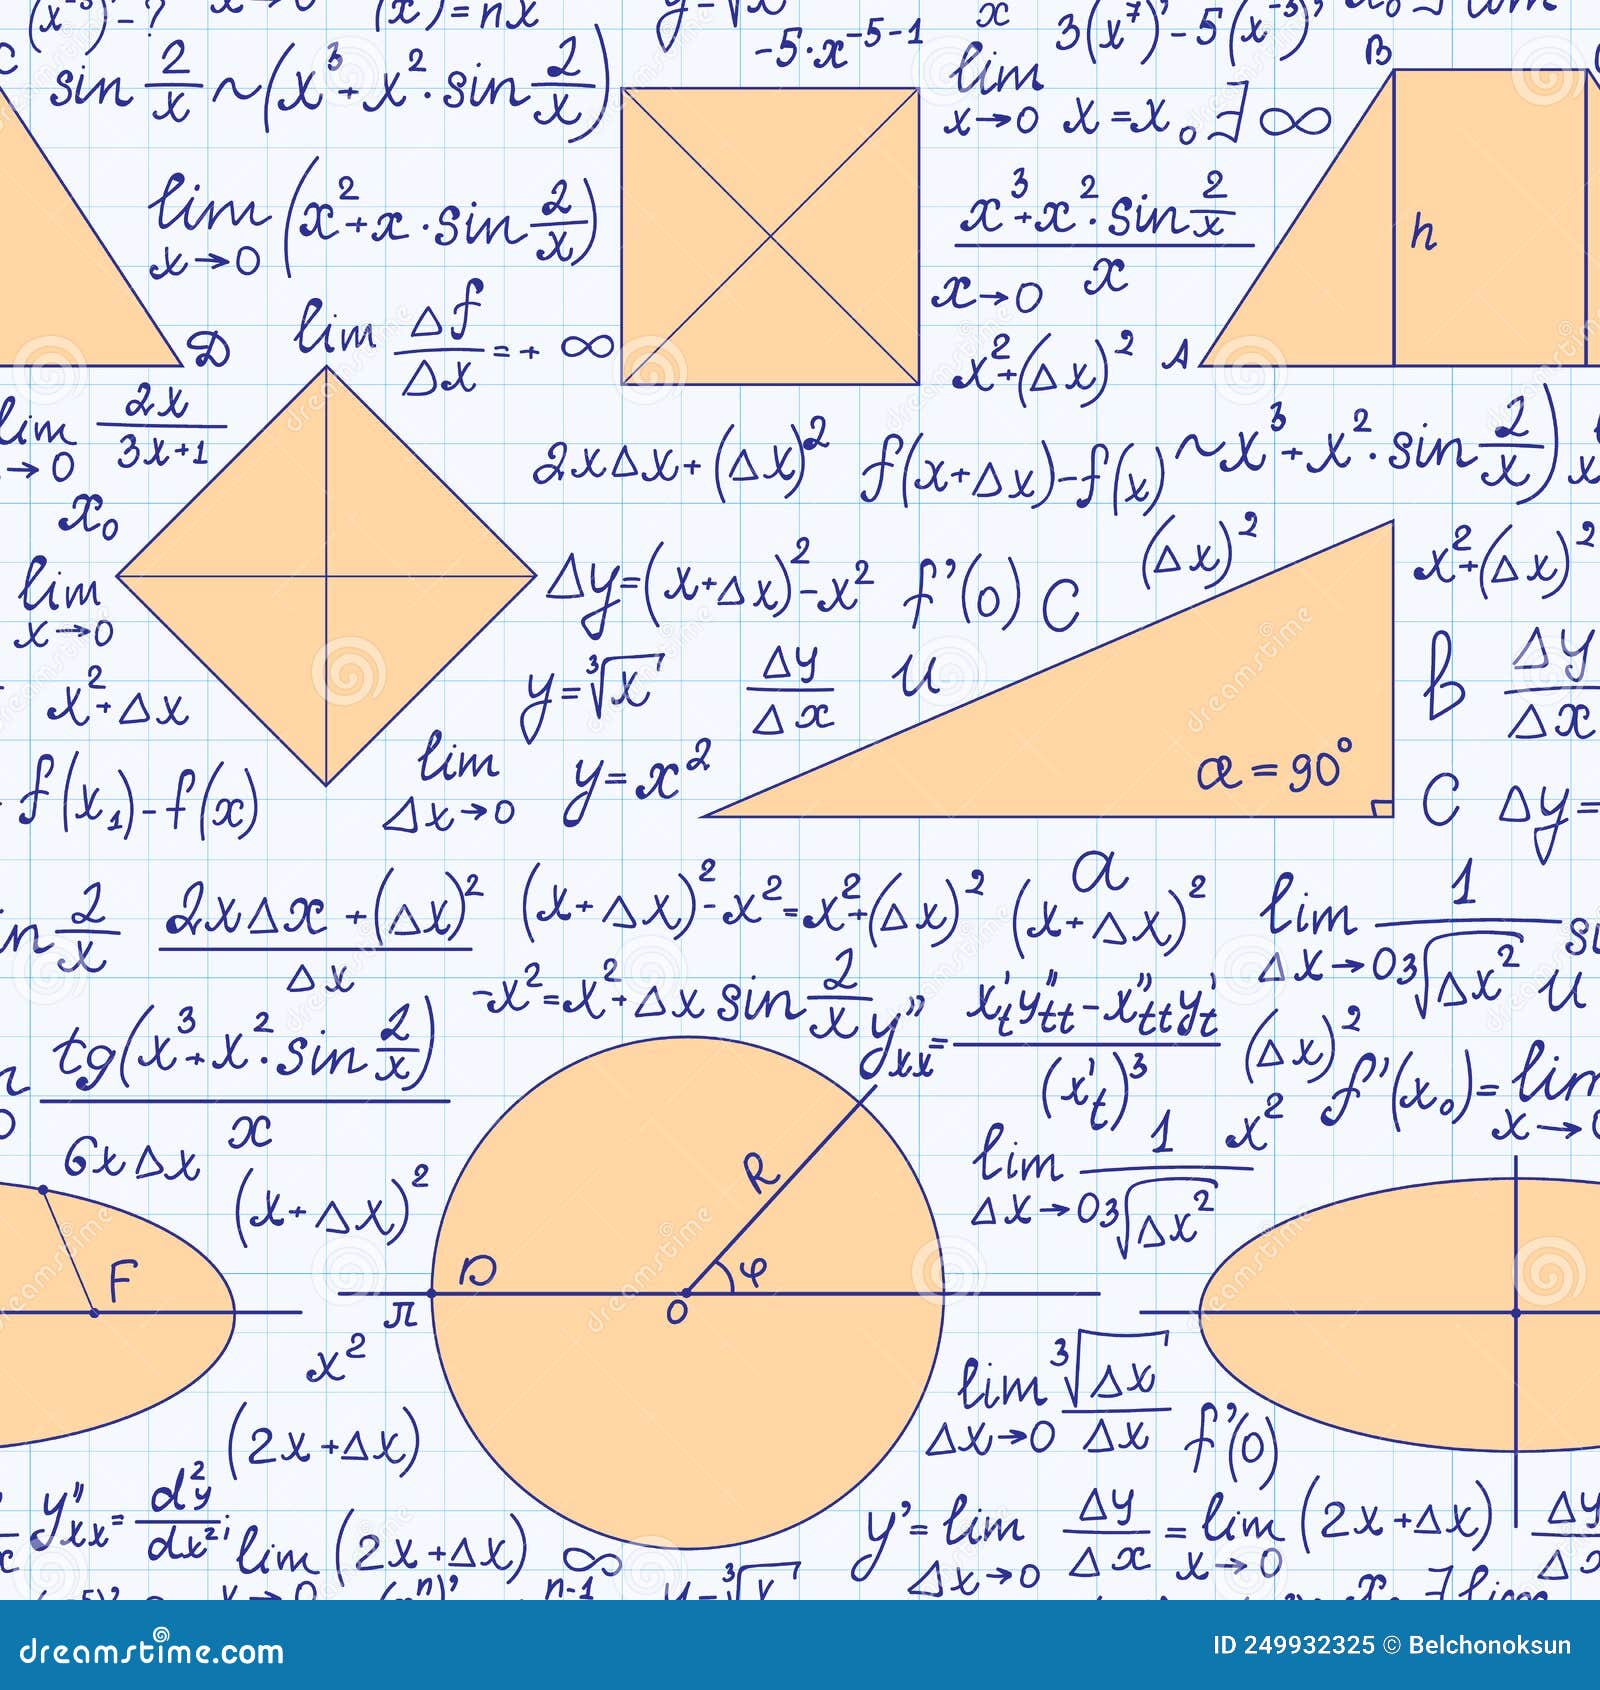 -5·x⁻⁵⁻¹
3(x⁷)' - 5(x⁻⁵)'
B
sin 2/x ~ (x³ + x² · sin 2/x)
lim x→0
x = x₀ ∃ ∞
lim x→0 (x² + x · sin 2/x)
x³ + x² · sin 2/x / x
x→0
h
D
lim Δf/Δx = + ∞
x² + (Δx)²
A
lim 2x/3x+1
→0
2xΔx + (Δx)²
f(x+Δx) - f(x)
~ x³ + x² · sin 2/x)
x₀
(Δx)²
x² + (Δx)²
lim x→0
Δy = (x+Δx)² - x²
f'(0)
C
x² + Δx
y = ³√x
Δy/Δx
u
B
Δy/Δx
f(x₁) - f(x)
lim Δx→0
y = x²
α = 90°
C
Δy =
a
2/x
2xΔx + (Δx)² / Δx
(x + Δx)² - x² = x² + (Δx)²
(x + Δx)²
lim Δx→0 1/³√Δx²
-x² = x² + Δx sin 2/x
u
tg(x³ + x² · sin 2/x) / x
y''xx = x't y''tt - x''tt y't / (x't)³
(Δx)²
f'(x₀) = lim x→0
6xΔx
x²
lim Δx→0 1/³√Δx²
(x + Δx)²
R
F
D
φ
π
O
x²
lim Δx→0 ³√Δx/Δx
f'(0)
(2x + Δx)
y''xx = d²y/dx²;
lim (2x + Δx)
∞
y' = lim Δx→0 Δy/Δx = lim x→0 (2x + Δx)
Δy/Δx
n-1
dreamstime.com
ID 249932325 © Belchonoksun